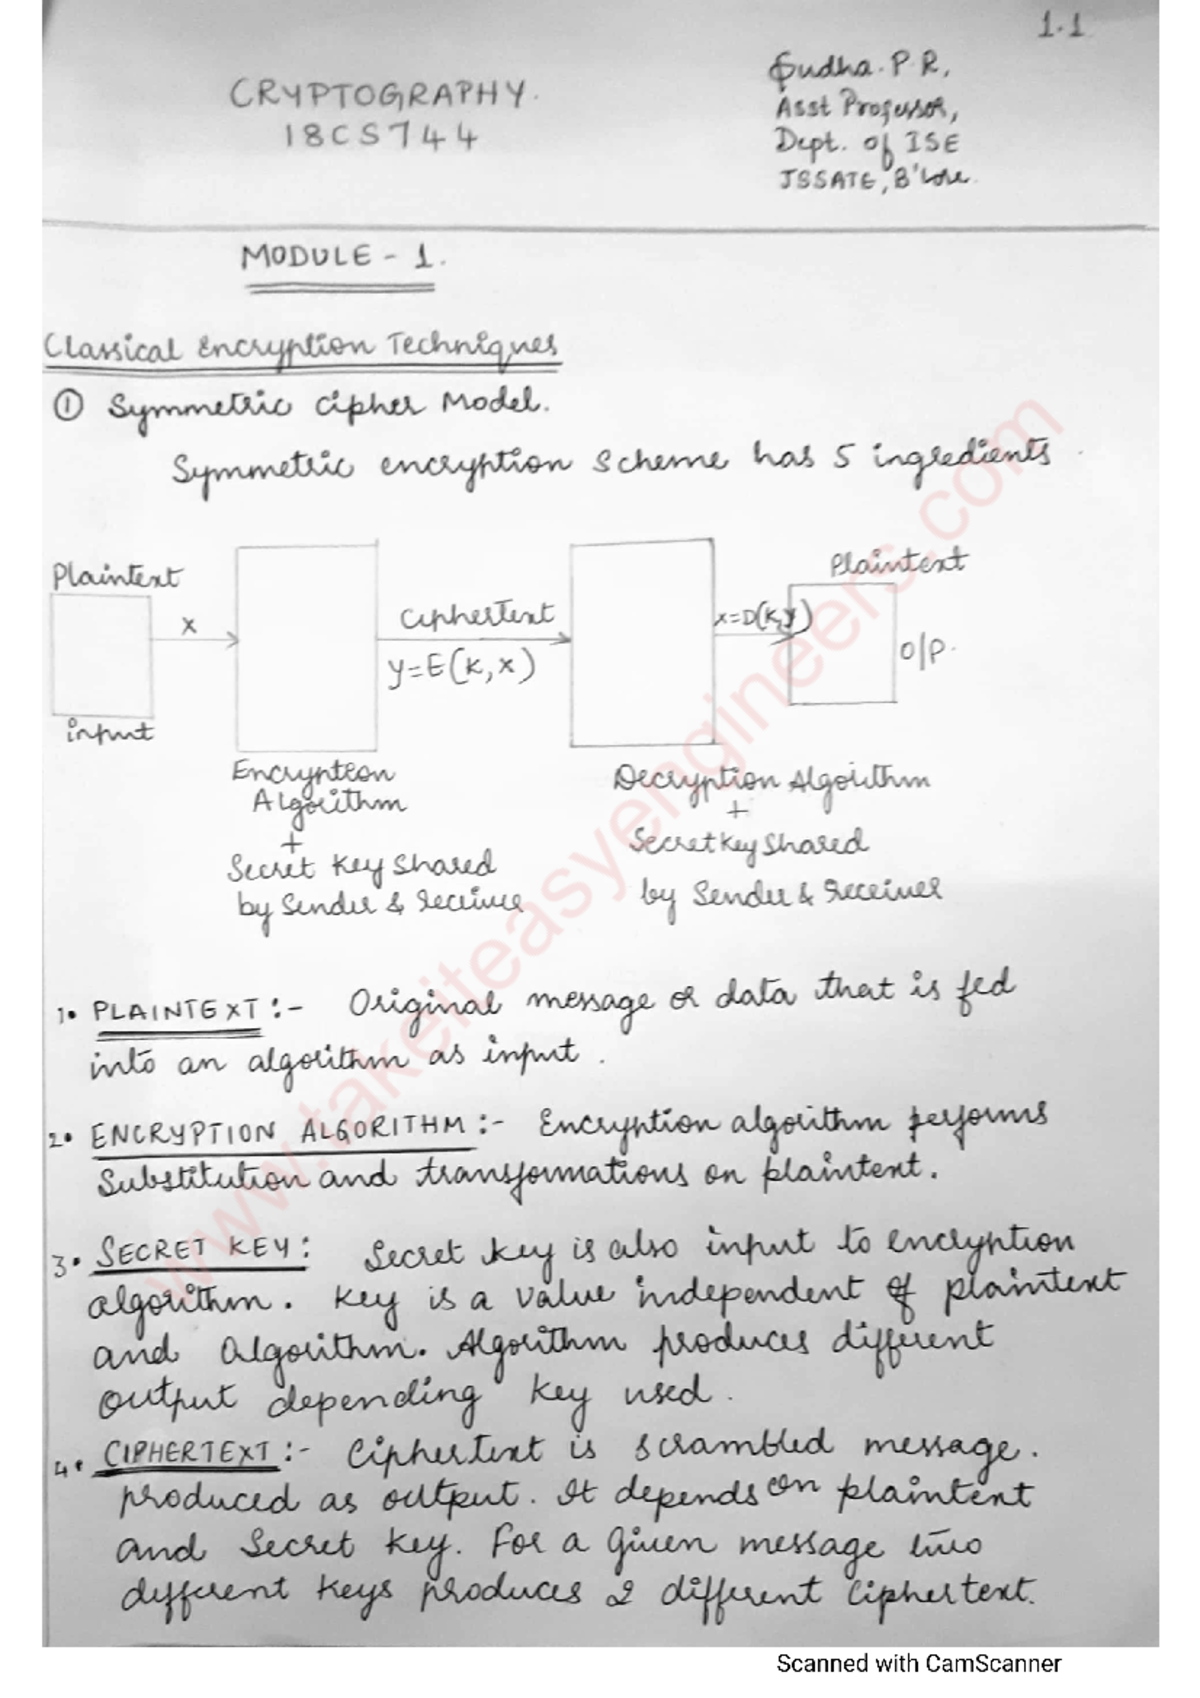 1.1
Sudha. P. R,
CRYPTOGRAPHY.
Asst Professor,
18CS744
Dept. of ISE
JSSATE, B'lore.
MODULE - 1.
Classical Encryption Techniques
① Symmetric Cipher Model.
Symmetric encryption Scheme has 5 ingredients.
Plaintext
Plaintext
X
Ciphertext
x=D(K,y)
y=E(K,x)
O/P.
input
Encryption
Decryption Algorithm
Algorithm
+
+
Secret Key Shared
Secret Key Shared
by Sender & receiver
by Sender & receiver
1. PLAINTEXT :- Original message or data that is fed
into an algorithm as input.
2. ENCRYPTION ALGORITHM :- Encryption algorithm performs
Substitution and transformations on plaintext.
3. SECRET KEY : Secret key is also input to encryption
algorithm. Key is a value independent of plaintext
and Algorithm. Algorithm produces different
output depending key used.
4. CIPHERTEXT :- Ciphertext is scrambled message.
produced as output. It depends on plaintext
and Secret key. For a given message two
different keys produces 2 different Ciphertext.
www.takeiteasyengineers.com
Scanned with CamScanner